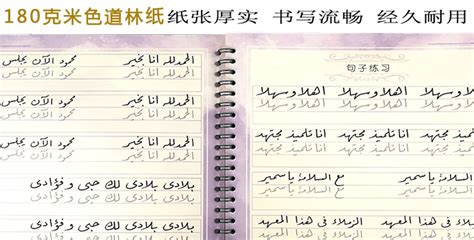 180克米色道林纸 纸张厚实 书写流畅 经久耐用
الحمدلله انا بخير محمود الآن يجلس
الحمدلله انا بخير محمود الآن يجلس
الحمدلله انا بخير محمود الآن يجلس
الحمدلله انا بخير محمود الآن يجلس
بلادى بلادى لك حبى وفؤادى
بلادى بلادى لك حبى وفؤادى
句子练习
اهلا وسهلا اهلا وسهلا اهلا وسهلا
اهلا وسهلا اهلا وسهلا اهلا وسهلا
انا تلميذ مجتهد انا تلميذ مجتهد
انا تلميذ مجتهد انا تلميذ مجتهد
مع السلامة ياسمير
مع السلامة ياسمير
الزملاء فى هذا المعهد